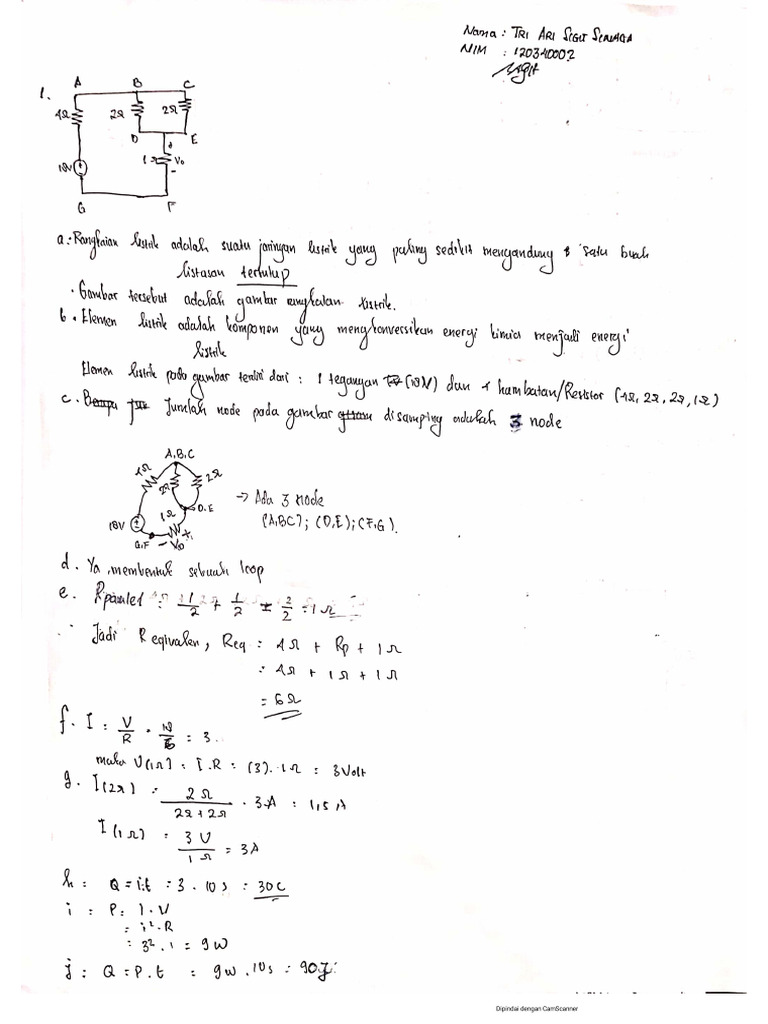 Nama : TRI ARI SIGIT SINAGA
NIM : 120340002
1.
A B C
4Ω 2Ω 2Ω
D E
18V 1Ω + Vo -
G F
a. · Rangkaian listrik adalah suatu jaringan listrik yang paling sedikit mengandung satu buah
lintasan tertutup
· Gambar tersebut adalah gambar rangkaian listrik.
b. Elemen listrik adalah komponen yang mengkonversikan energi kimia menjadi energi
listrik
Elemen listrik pada gambar terdiri dari : 1 tegangan (18V) dan 4 hambatan/Resistor (4Ω, 2Ω, 2Ω, 1Ω)
c. Jumlah node pada gambar disamping adalah 3 node
A,B,C
4Ω 2Ω 2Ω
D,E
1Ω
18V
G,F - Vo +
→ Ada 3 node
(A,B,C) ; (D,E) ; (F,G).
d. Ya, membentuk sebuah loop
e. Rparalel = 1/2 + 1/2 = 2/2 = 1Ω
Jadi R eqivalen, Req = 4Ω + Rp + 1Ω
= 4Ω + 1Ω + 1Ω
= 6Ω
f. I = V/R = 18/6 = 3.
maka V(1Ω) = I.R = (3). 1Ω = 3 Volt
g. I(2Ω) = 2Ω/2Ω+2Ω . 3A = 1,5 A
I(1Ω) = 3V/1Ω = 3A
h : Q = i.t = 3 . 10s = 30C
i : P = I.V
= i².R
= 3².1 = 9W
j : Q = P.t = 9W . 10s = 90J
Dipindai dengan CamScanner